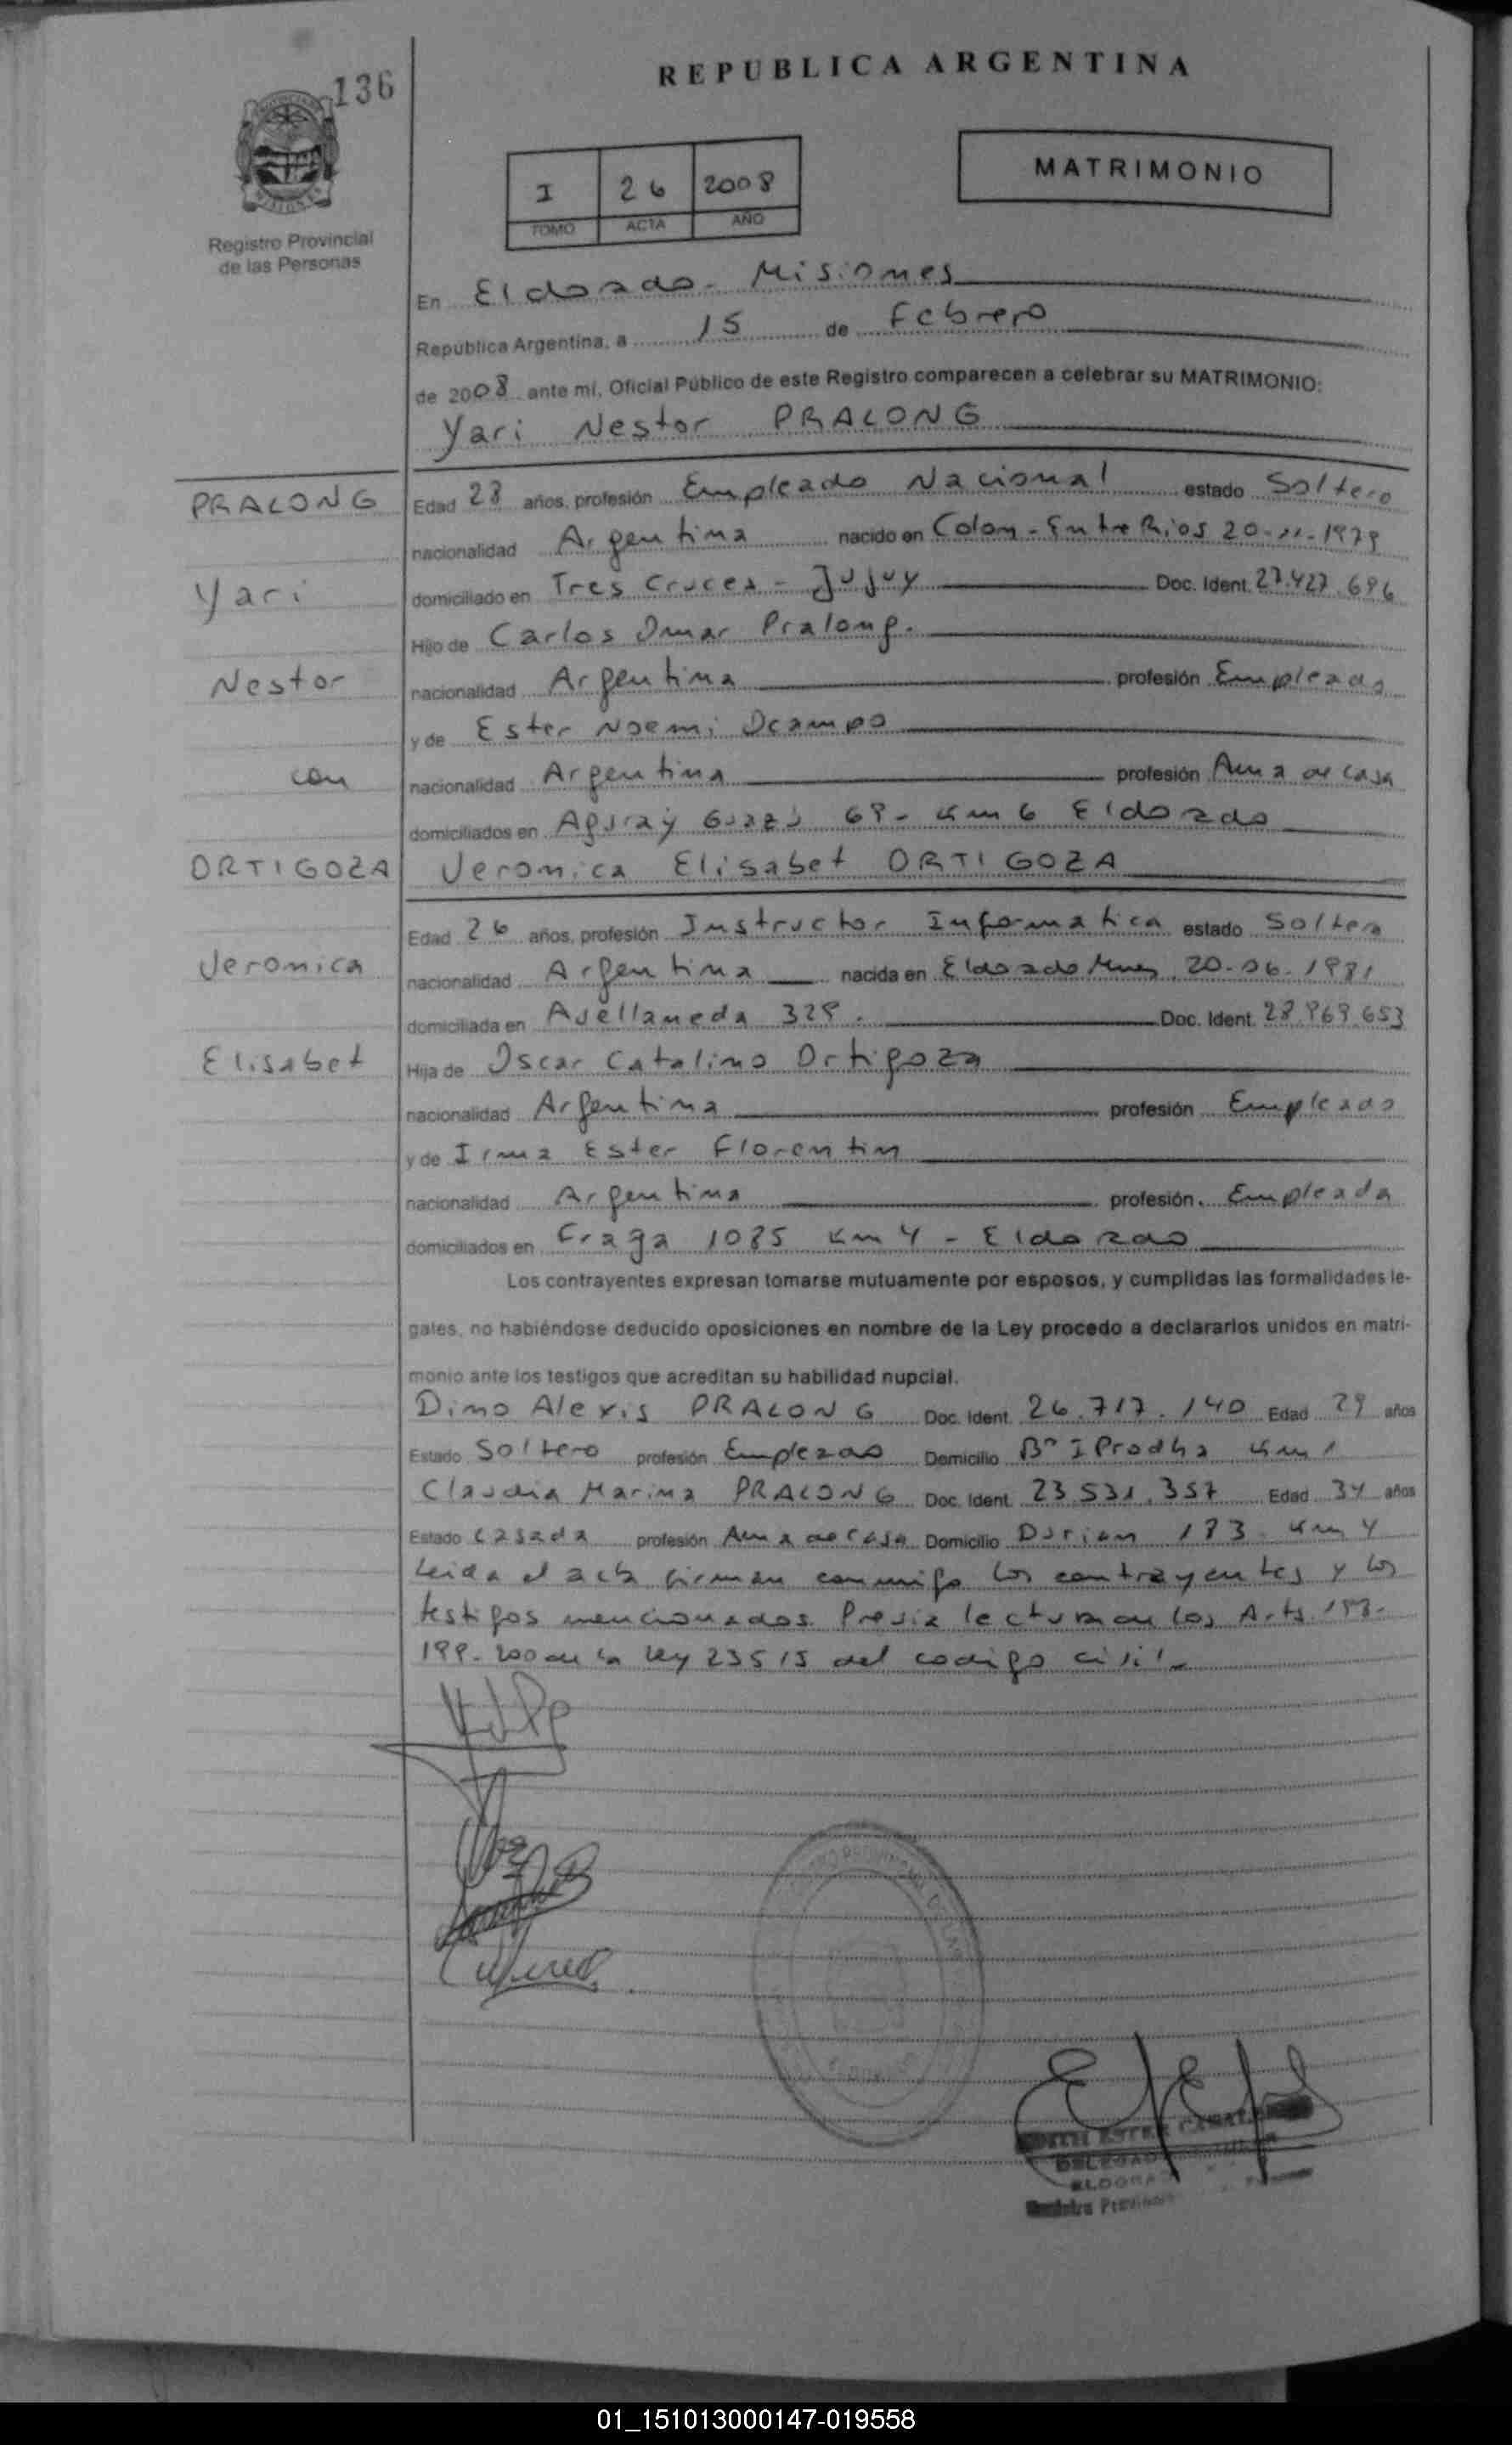 136
REPUBLICA ARGENTINA
I 26 2008
TOMO ACTA AÑO
MATRIMONIO
Registro Provincial
de las Personas
En Eldorado - Misiones
República Argentina, a 15 de Febrero
de 2008 ante mí, Oficial Público de este Registro comparecen a celebrar su MATRIMONIO:
Yari Nestor PRALONG
PRALONG
Yari
Nestor
con
ORTIGOZA
Veronica
Elisabet
Edad 28 años, profesión Empleado Nacional estado Soltero
nacionalidad Argentina nacido en Colon - Entre Rios 20-11-1979
domiciliado en Tres Cruces - Jujuy Doc. Ident. 27.427.696
Hijo de Carlos Omar Pralong.
nacionalidad Argentina profesión Empleado
y de Ester Noemi Ocampo
nacionalidad Argentina profesión Ama de casa
domiciliados en Aguray Guazú 69 - Km 6 Eldorado
Veronica Elisabet ORTIGOZA
Edad 26 años, profesión Instructor Informatica estado Soltera
nacionalidad Argentina nacida en Eldorado Mnes 20-06-1981
domiciliada en Avellaneda 329. Doc. Ident. 28.969.653
Hija de Oscar Catalino Ortigoza
nacionalidad Argentina profesión Empleado
y de Irma Ester Florentin
nacionalidad Argentina profesión. Empleada
domiciliados en Fraga 1085 Km 4 - Eldorado
Los contrayentes expresan tomarse mutuamente por esposos, y cumplidas las formalidades le-
gales, no habiéndose deducido oposiciones en nombre de la Ley procedo a declararlos unidos en matri-
monio ante los testigos que acreditan su habilidad nupcial.
Dino Alexis PRALONG Doc. Ident. 26.717.140 Edad 29 años
Estado Soltero profesión Empleado Domicilio Bº I Prodha Km 1
Claudia Marina PRALONG Doc. Ident. 23.531.357 Edad 34 años
Estado Casada profesión Ama de casa Domicilio Durian 183 - Km 4
Leida el acta firman conmigo los contrayentes y los
testigos mencionados. Previa lectura de los Arts. 198-
199-200 de la Ley 23515 del codigo civil
ESTER
ELDORA
01_151013000147-019558